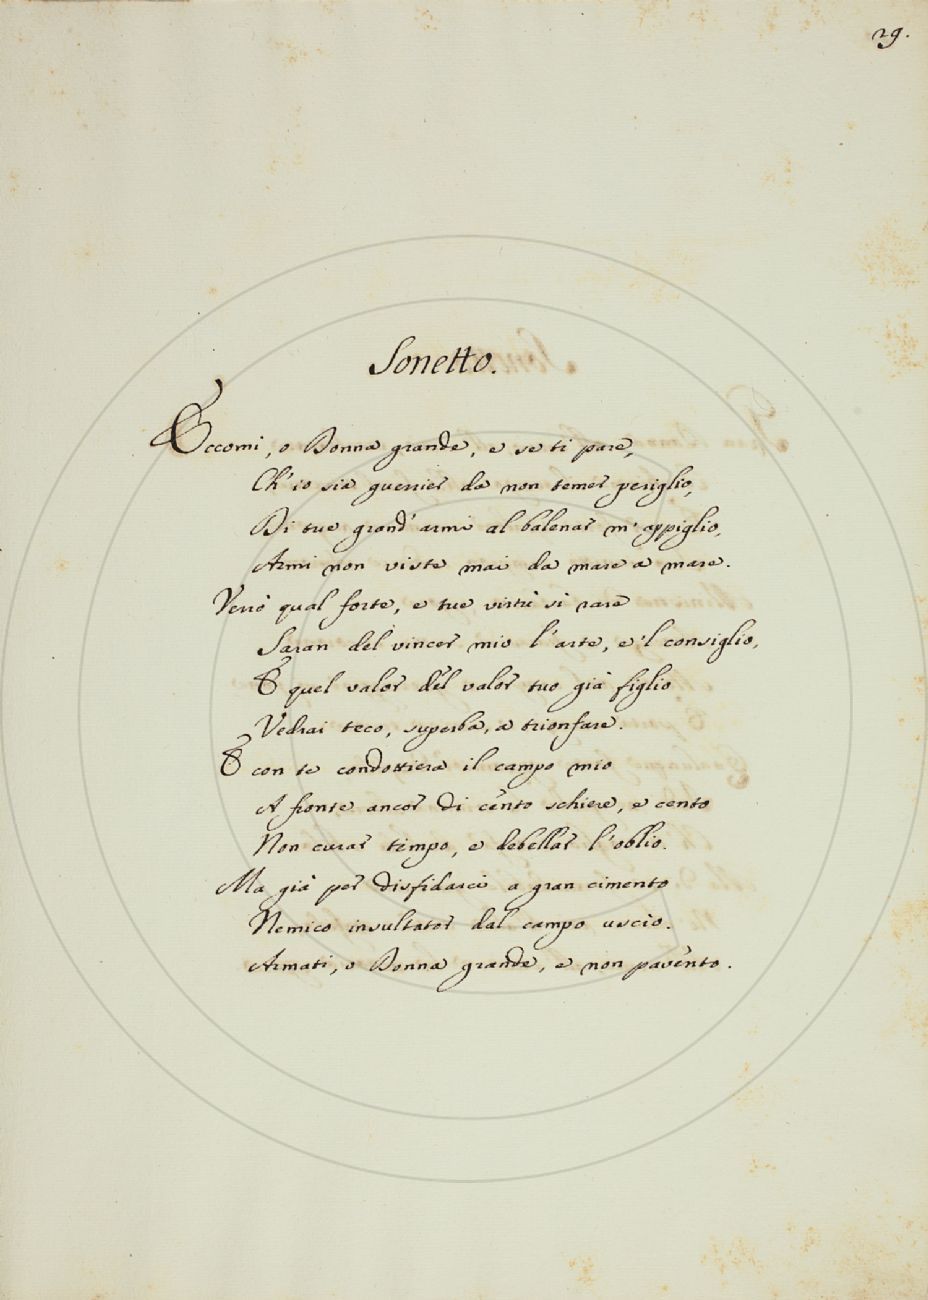 29.
Sonetto.
Eccomi, o Donna grande, e se ti pare,
Ch'io sia guerrier da non temer periglio,
Di tue grand'armi al balenar m'appiglio,
Armi non viste mai da mare a mare.
Verrò qual forte, e tue virtù sì rare
Saran del vincer mio l'arte, e'l consiglio,
E quel valor del valor tuo già figlio
Vedrai teco, superba, a trionfare.
E con te condottiera il campo mio
A fronte ancor di cento schiere, e cento
Non curar tempo, e debellar l'oblio.
Ma già per disfidarci a gran cimento
Nemico insultator dal campo uscìo.
Armati, o Donna grande, e non pavento.